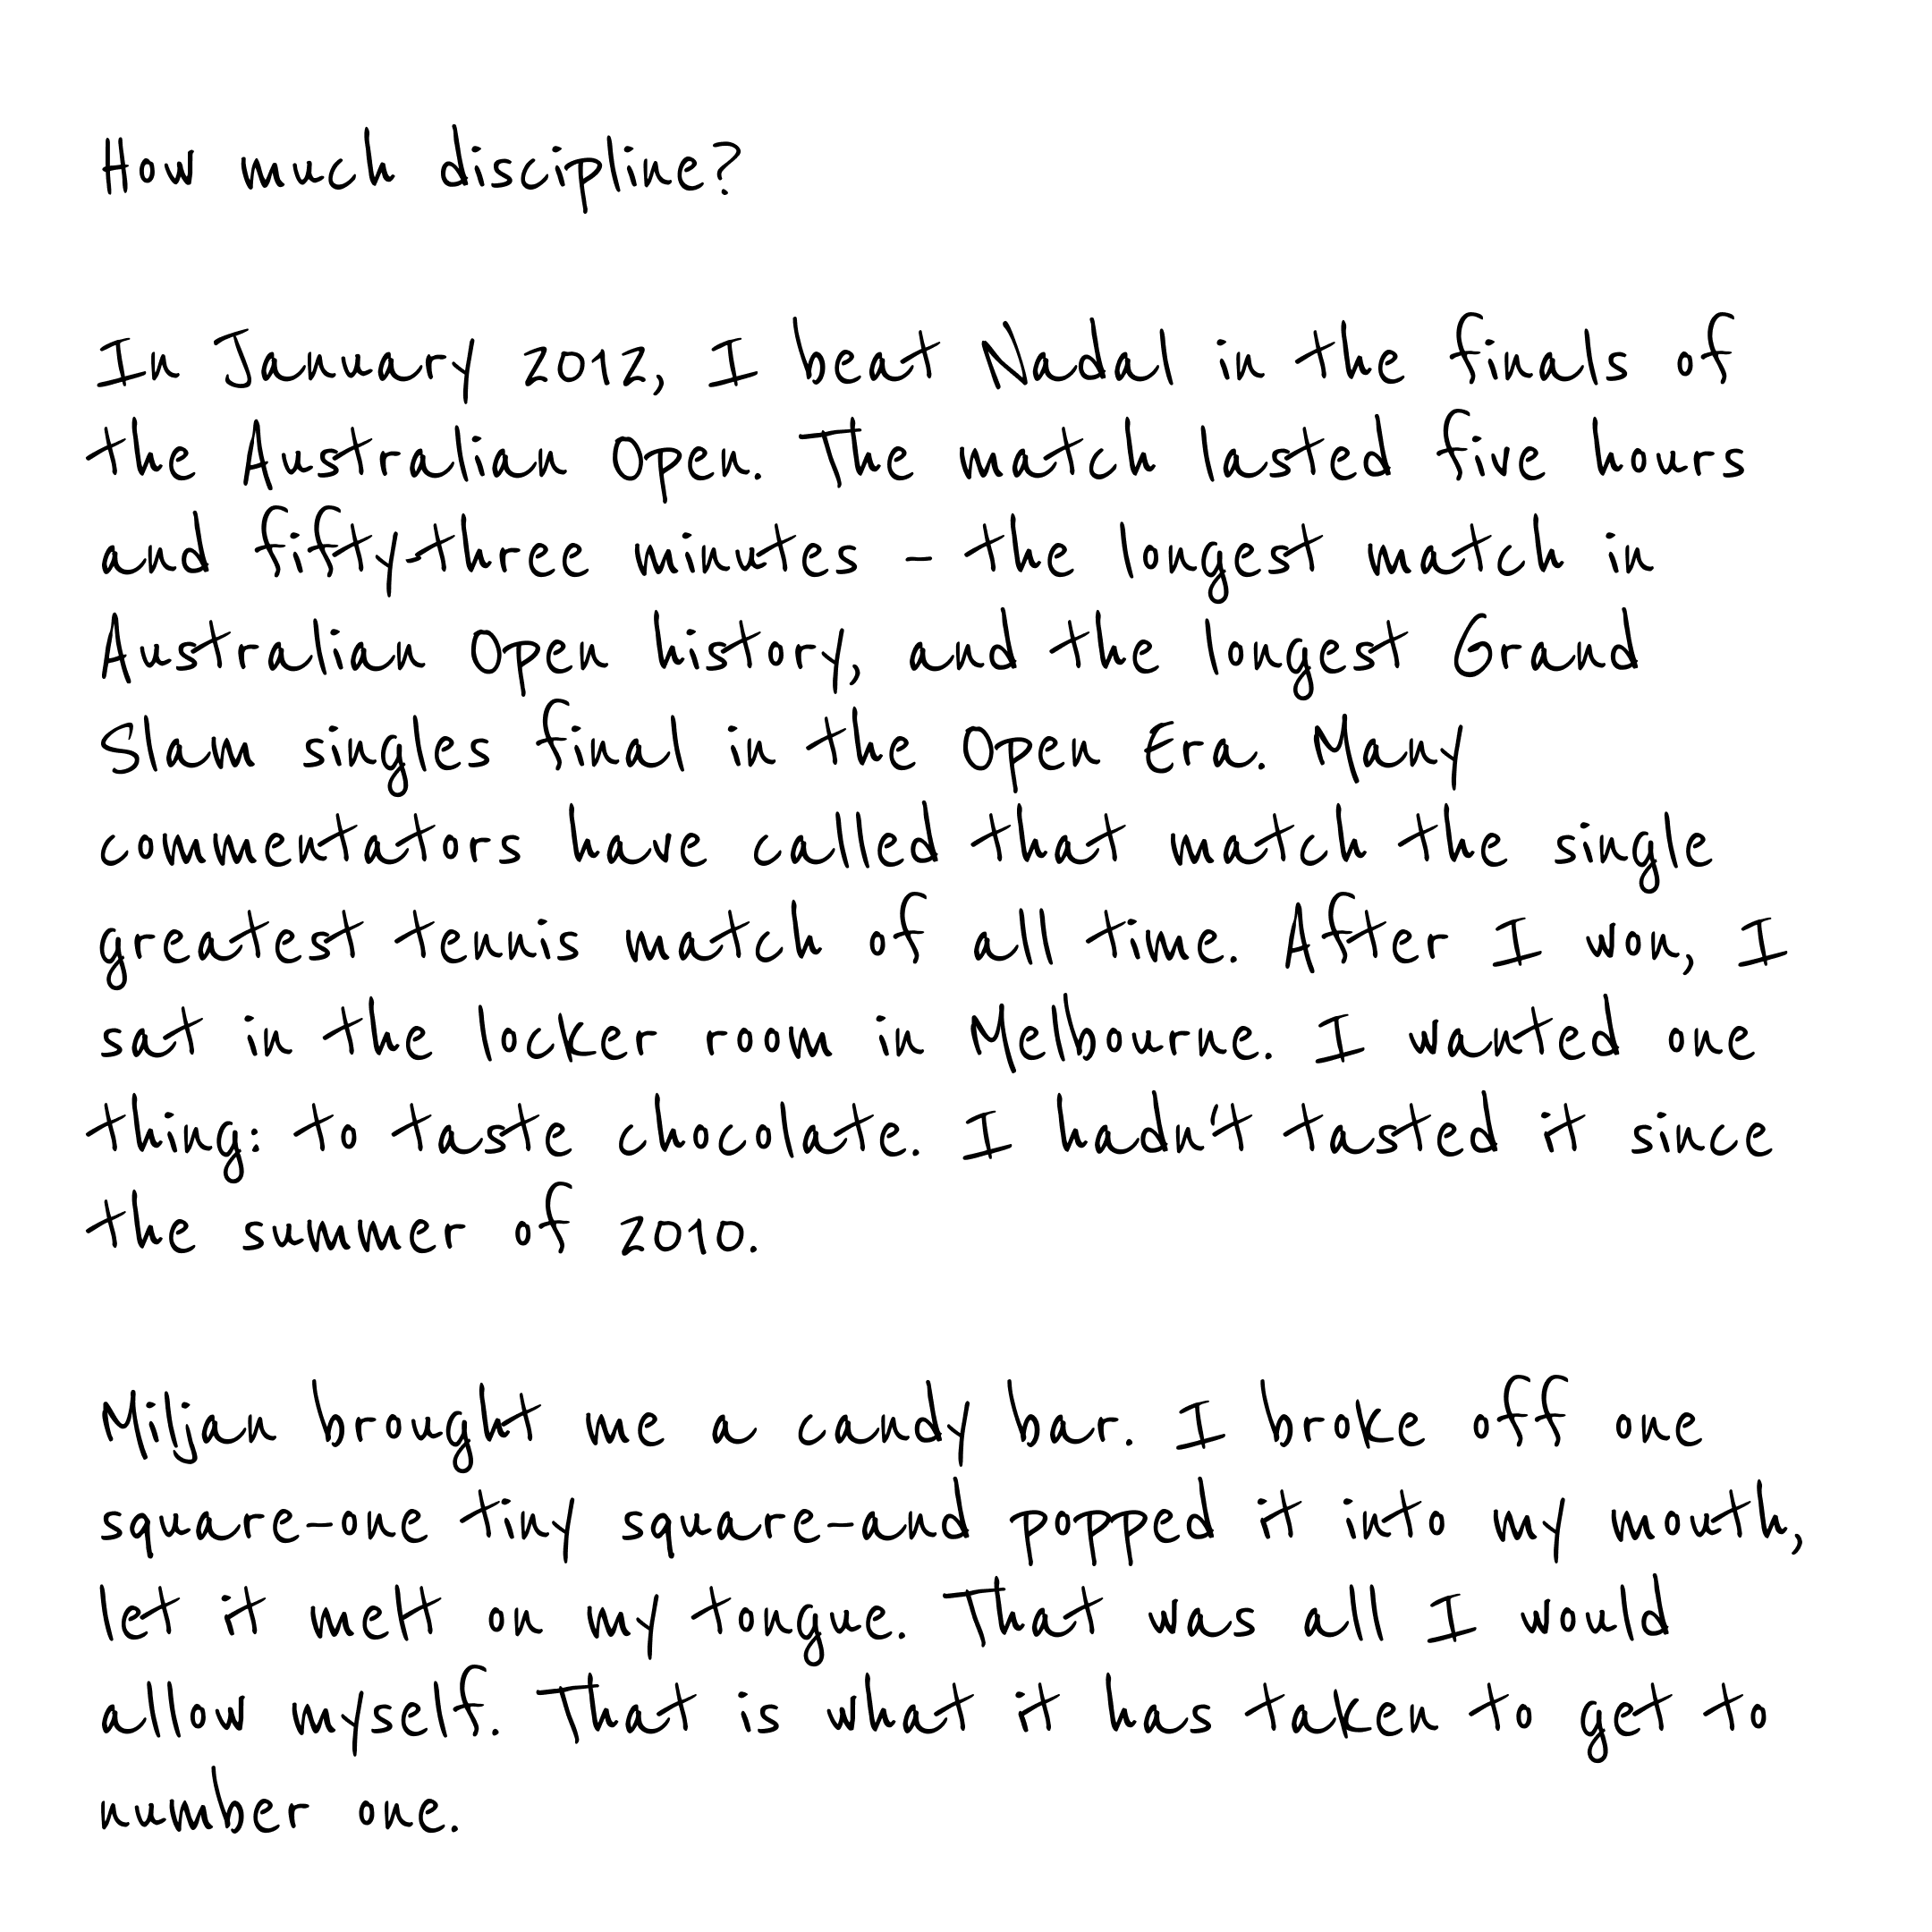 How much discipline?
In January 2012, I beat Nadal in the finals of
the Australian Open. The match lasted five hours
and fifty-three minutes - the longest match in
Australian Open history, and the longest Grand
Slam singles final in the Open Era. Many
commentators have called that match the single
greatest tennis match of all time. After I won, I
sat in the locker room in Melbourne. I wanted one
thing: to taste chocolate. I hadn't tasted it since
the summer of 2010.
Miljan brought me a candy bar. I broke off one
square—one tiny square—and popped it into my mouth,
let it melt on my tongue. That was all I would
allow myself. That is what it has taken to get to
number one.